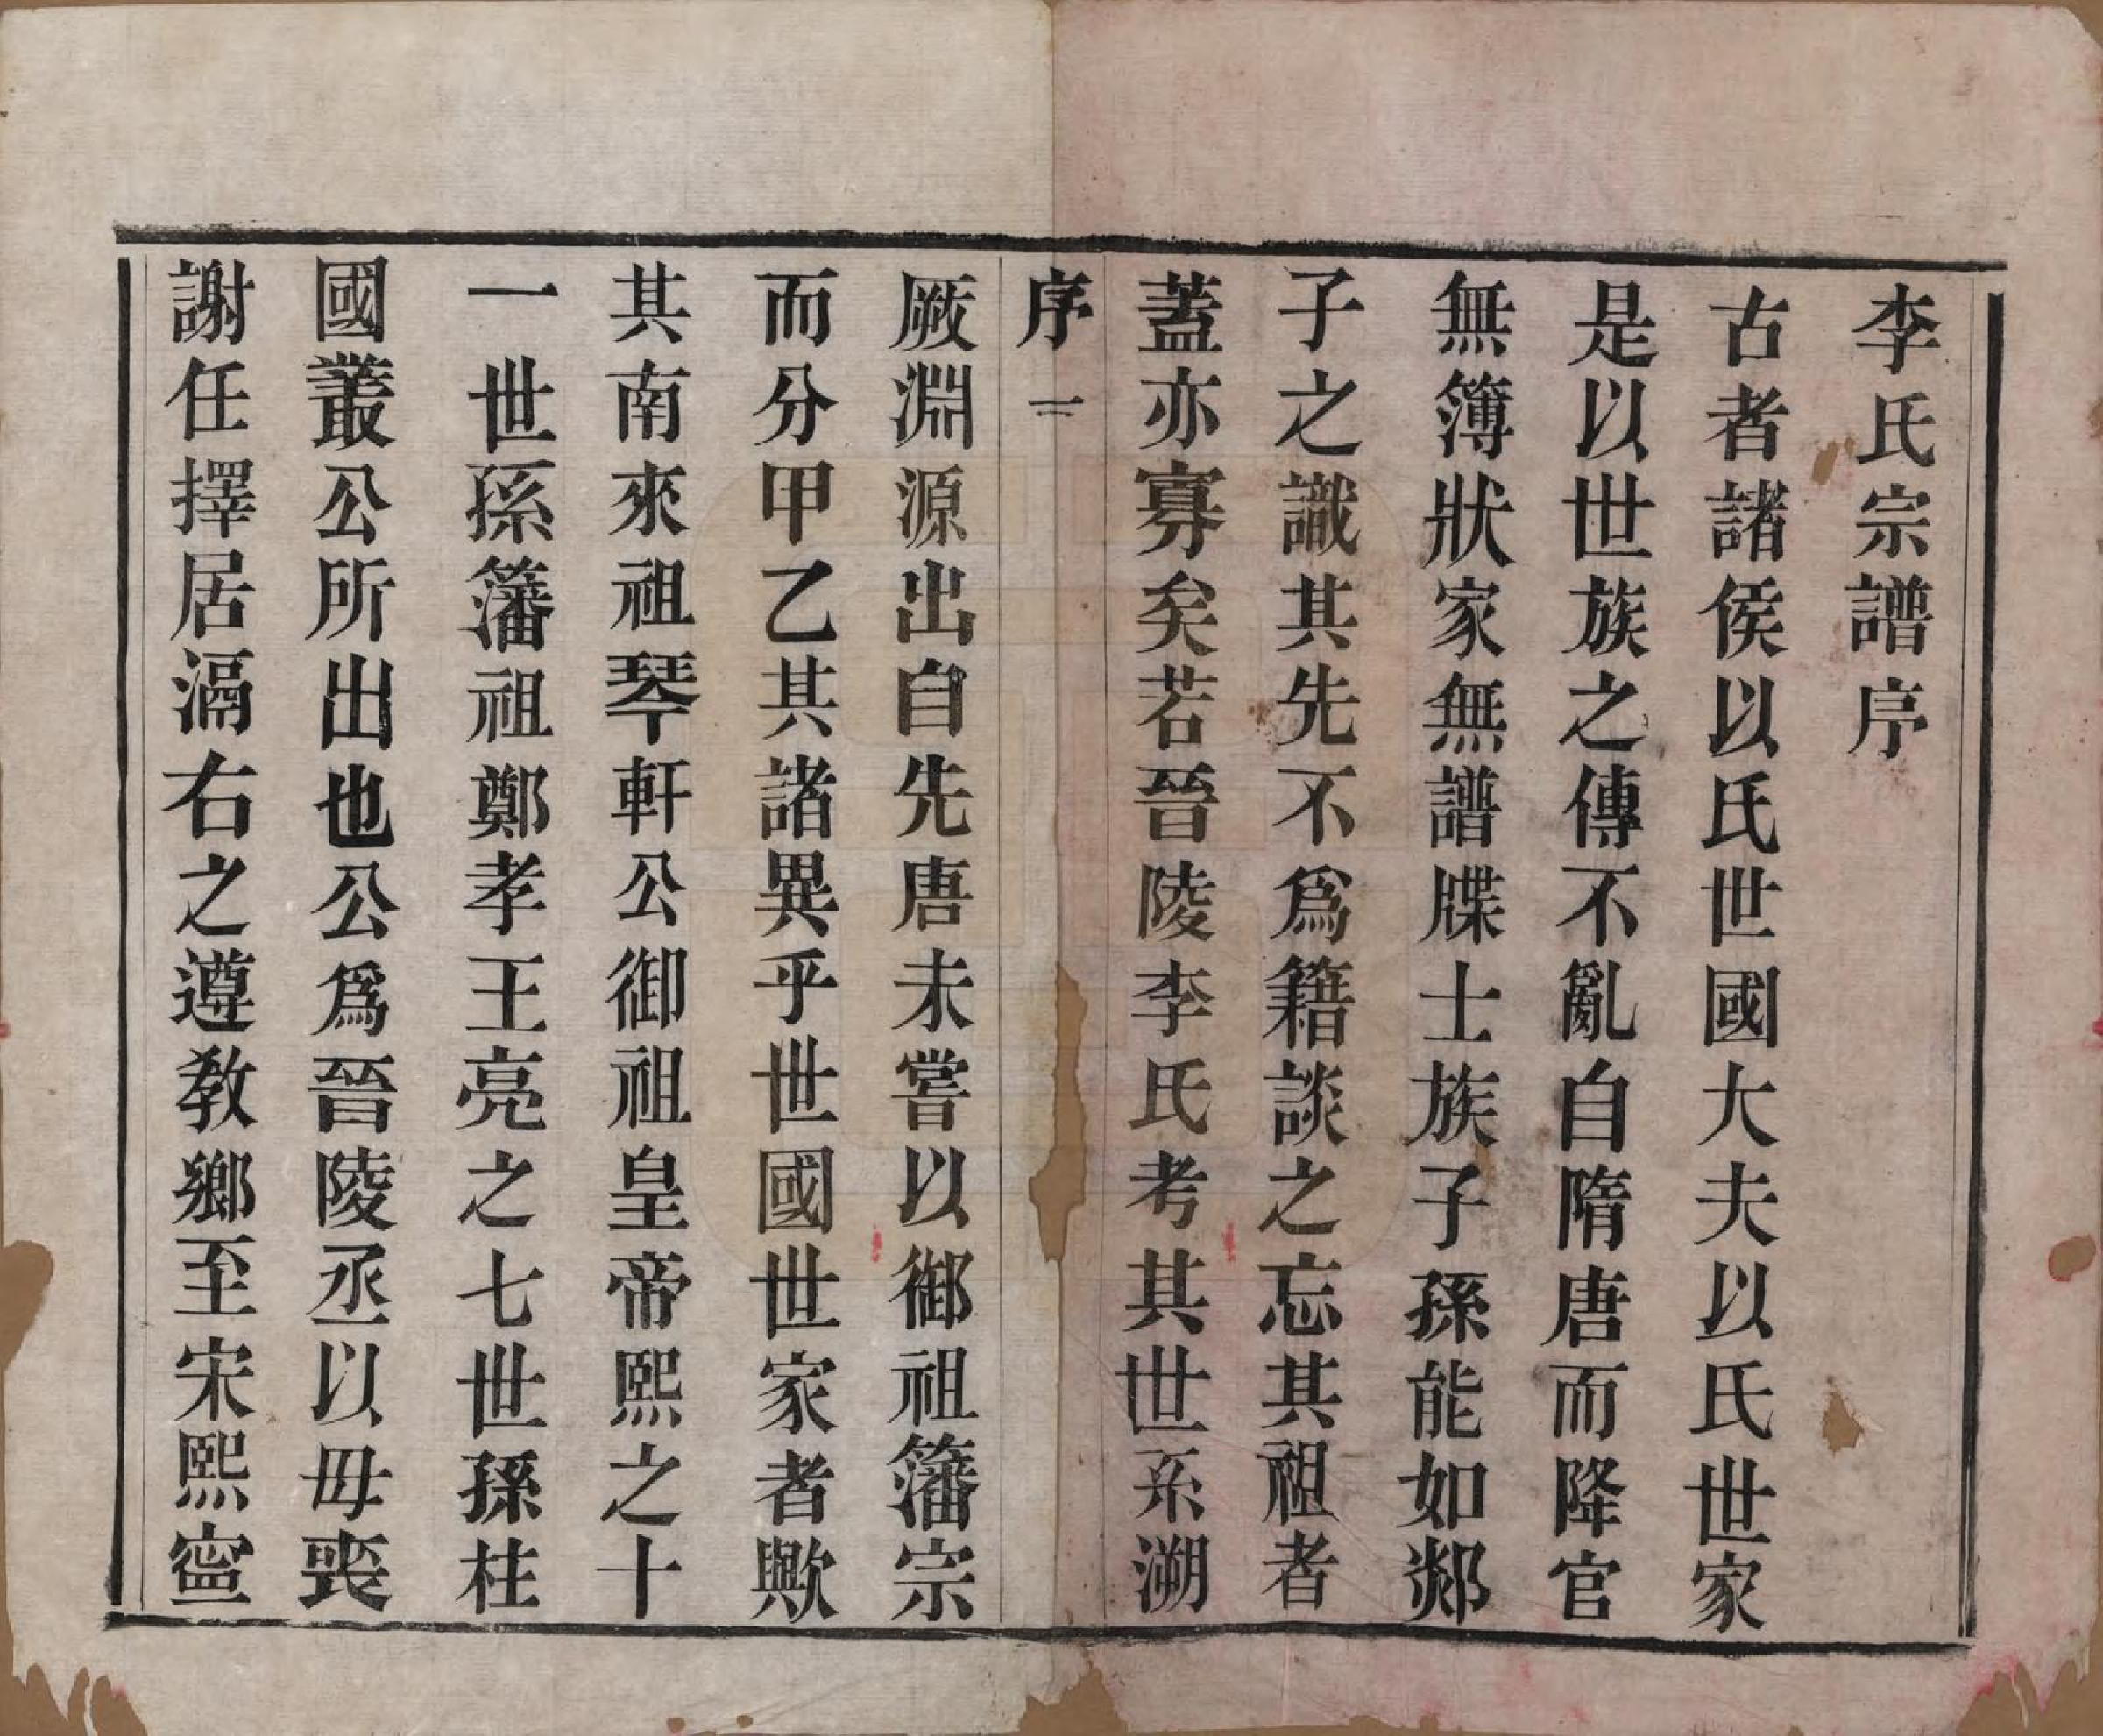 李氏宗譜序
古者諸侯以氏世國大夫以氏世家
是以世族之傳不亂自隋唐而降官
無簿狀家無譜牒士族子孫能如郯
子之識其先不爲籍談之忘其祖者
蓋亦寡矣若晉陵李氏考其世系溯
序一
厥淵源出自先唐未嘗以御祖籓宗
而分甲乙其諸異乎世國世家者歟
其南來祖琴軒公御祖皇帝熙之十
一世孫籓祖鄭孝王亮之七世孫柱
國叢公所出也公爲晉陵丞以毋喪
謝任擇居滆右之遵教鄉至宋熙寍